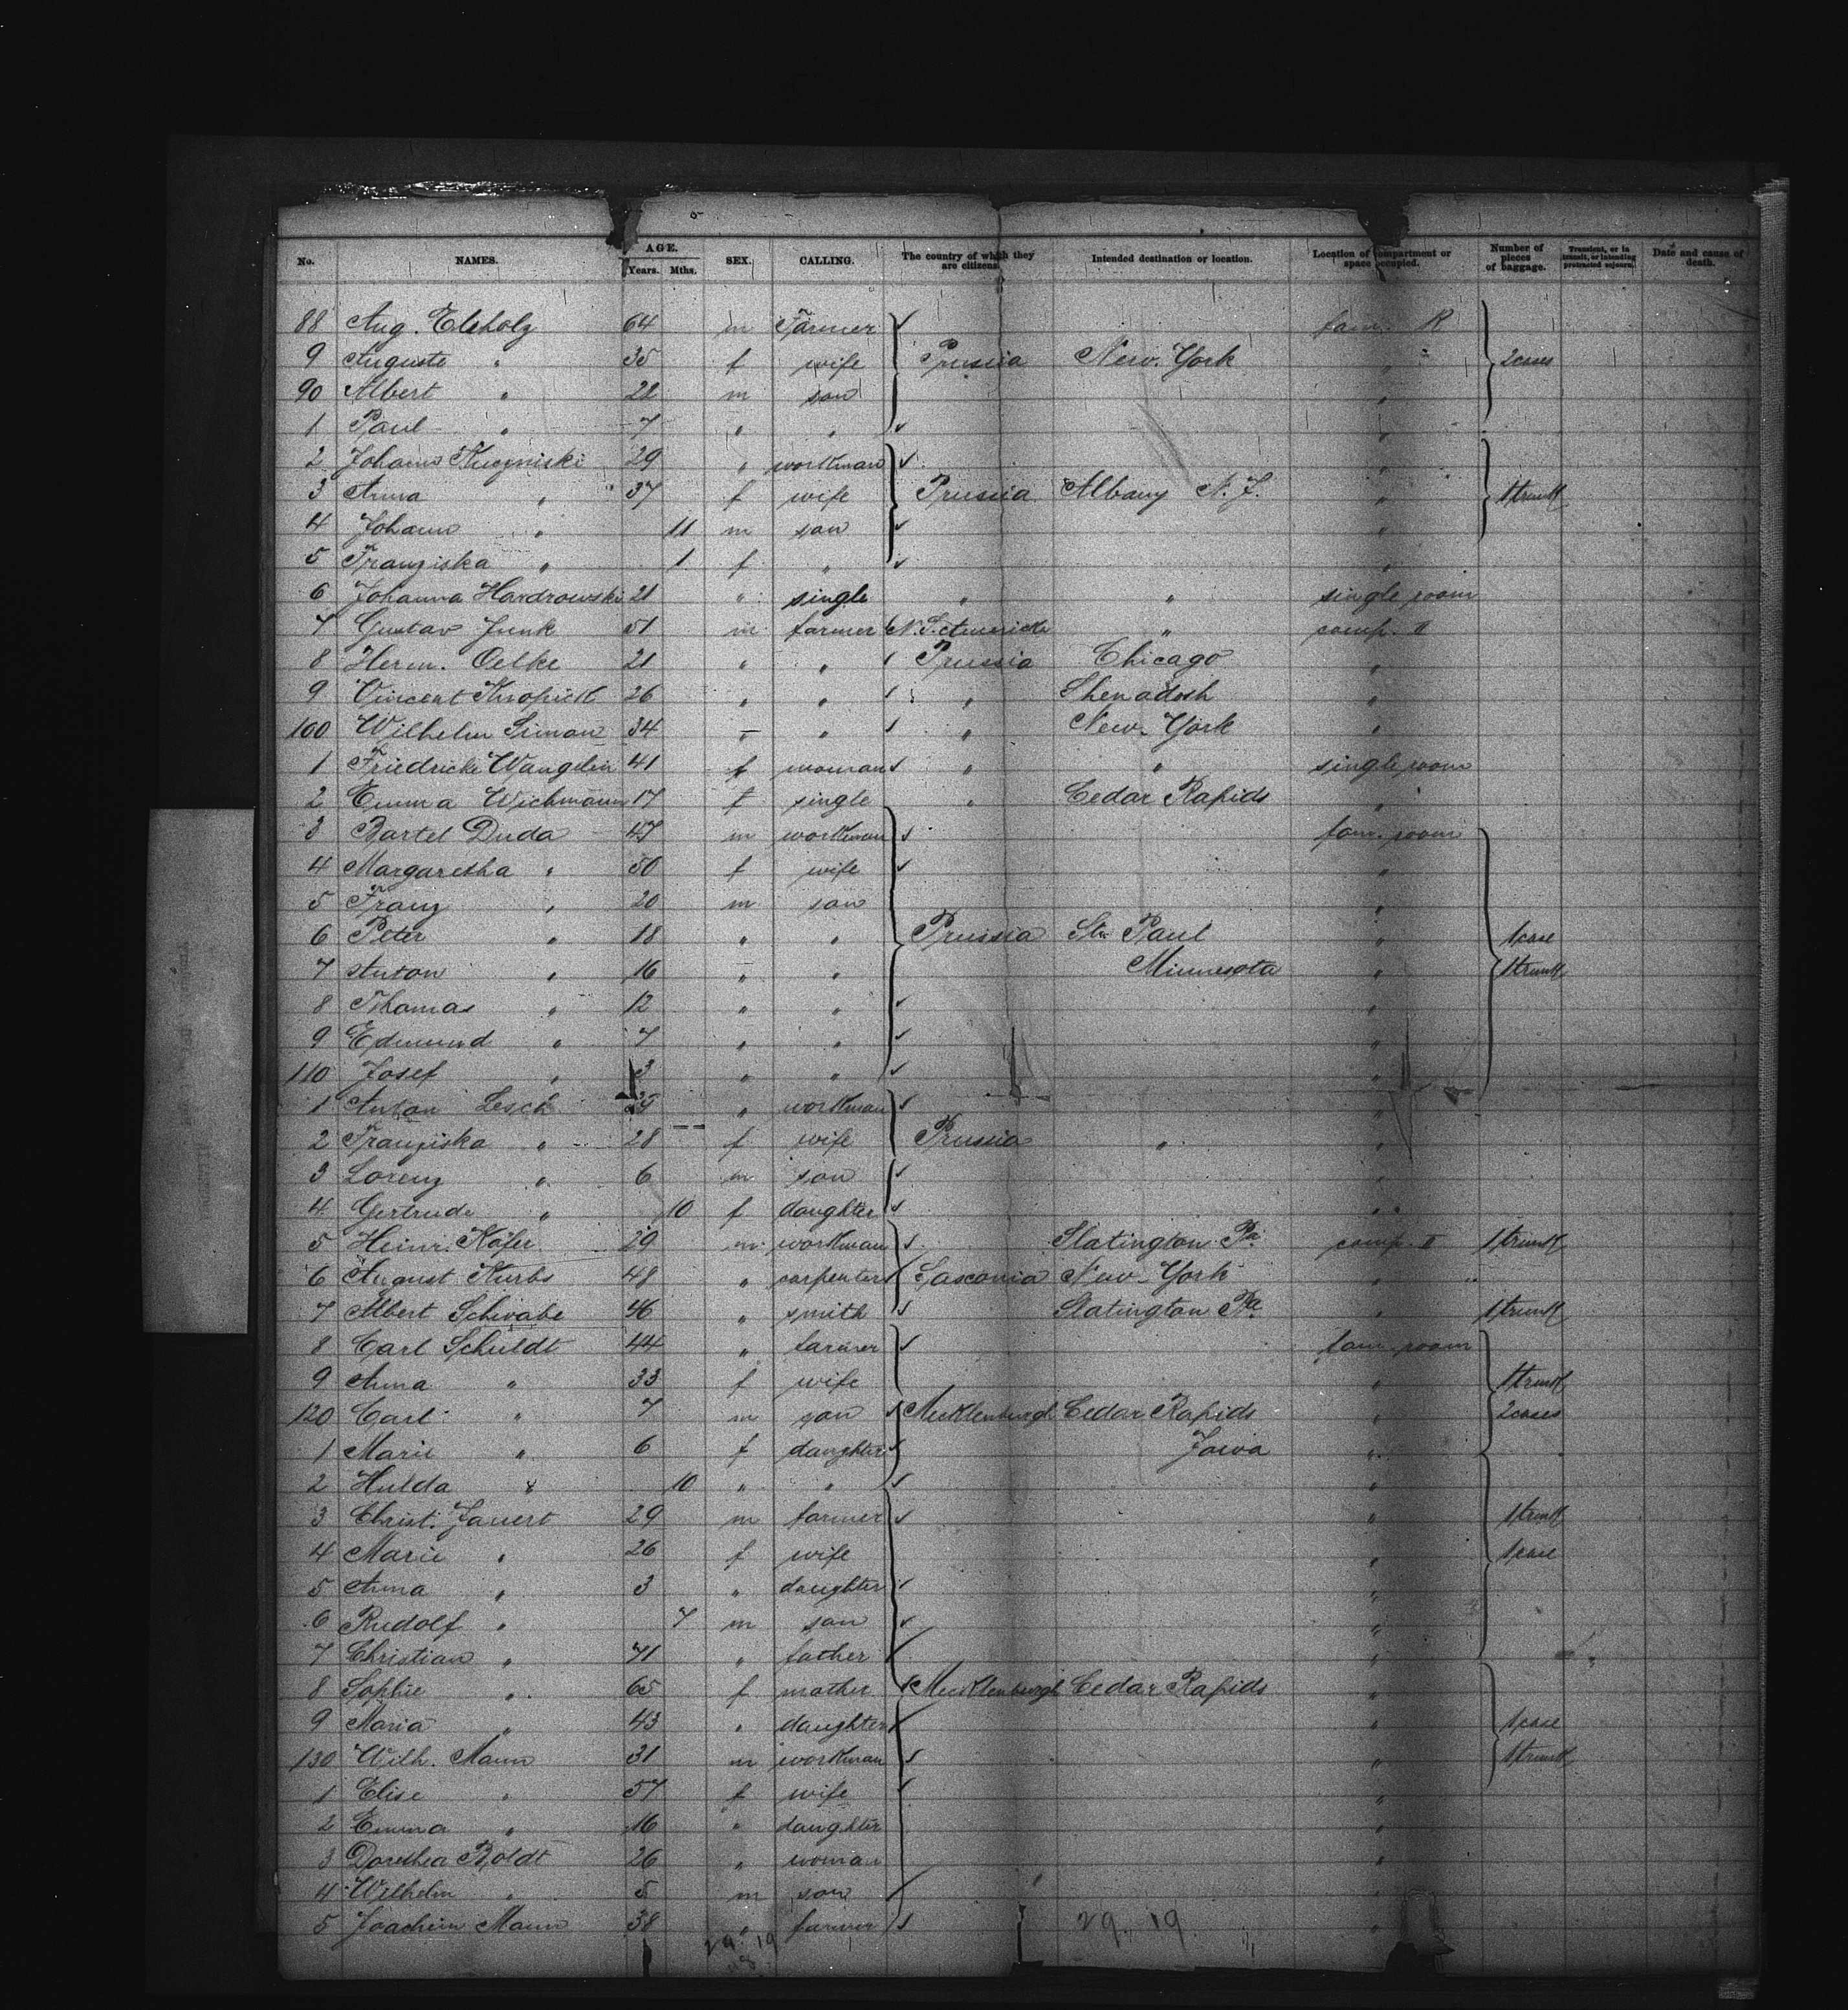 5
No. NAMES. AGE. Years. Mths. SEX. CALLING. The country of which they are citizens. Intended destination or location. Location of compartment or space occupied. Number of pieces of baggage. Transient, or in transit, or intending protracted sojourn. Date and cause of death.
88 Aug. Elsholz 64 m Farmer fam. R
9 Auguste " 35 f wife Prussia New-York " 2 cases
90 Albert " 22 m son "
1 Paul " 7 " " "
2 Johann 29 " workman "
3 Anna " 37 f wife Prussia Albany N. J. " 1 trunk
4 Johann " 11 m son "
5 Franziska " 1 f " "
6 Johanna Hardrowski 21 " single " " single room
7 Gustav Junk 51 m farmer N. S. America " comp. II
8 Herm. Oelke 21 " " Prussia Chicago "
9 Vincent Kropick 26 " " " Shenadosh "
100 Wilhelm Simon 34 " " " New-York "
1 Friedricke Wangelin 41 f woman " " single room
2 Emma Wichmann 17 f single " Cedar Rapids "
3 Bartel Duda 47 m workman fam. room
4 Margaretha " 50 f wife "
5 Franz " 20 m son "
6 Peter " 18 " " Prussia St. Paul " 1 case
7 Anton " 16 " " Minnesota " 1 trunk
8 Thomas " 12 " " "
9 Edmund " 7 " " "
110 Josef " 3 " " "
1 Anton Lesch 29 " workman "
2 Franziska " 28 f wife Prussia " "
3 Lorenz " 6 m son "
4 Gertrude " 10 f daughter "
5 Heinr. Köfer 29 m workman Slatington Pa. comp. II 1 trunk
6 August Kurbs 48 " carpenter Saxonia New-York " "
7 Albert Schwabe 46 " smith Slatington Pa. " 1 trunk
8 Carl Schuldt 44 " farmer fam. room
9 Anna " 33 f wife " 1 trunk
120 Carl " 7 m son Mecklenburgh Cedar Rapids " 2 cases
1 Marie " 6 f daughter Jowa "
2 Hulda " 10 " " "
3 Christ. Jauert 29 m farmer " 1 trunk
4 Marie " 26 f wife " 1 case
5 Anna " 3 " daughter "
6 Rudolf " 7 m son "
7 Christian " 71 " father "
8 Sophie " 65 f mother Mecklenburgh Cedar Rapids "
9 Maria " 43 " daughter " 1 case
130 Wilh. Mann 31 m workman " 1 trunk
1 Elise " 57 f wife "
2 Emma " 16 " daughter "
3 Dorethea Boldt 26 " woman "
4 Wilhelm " 5 m son " "
5 Joachim Mann 38 " farmer "
29. 19
29. 19